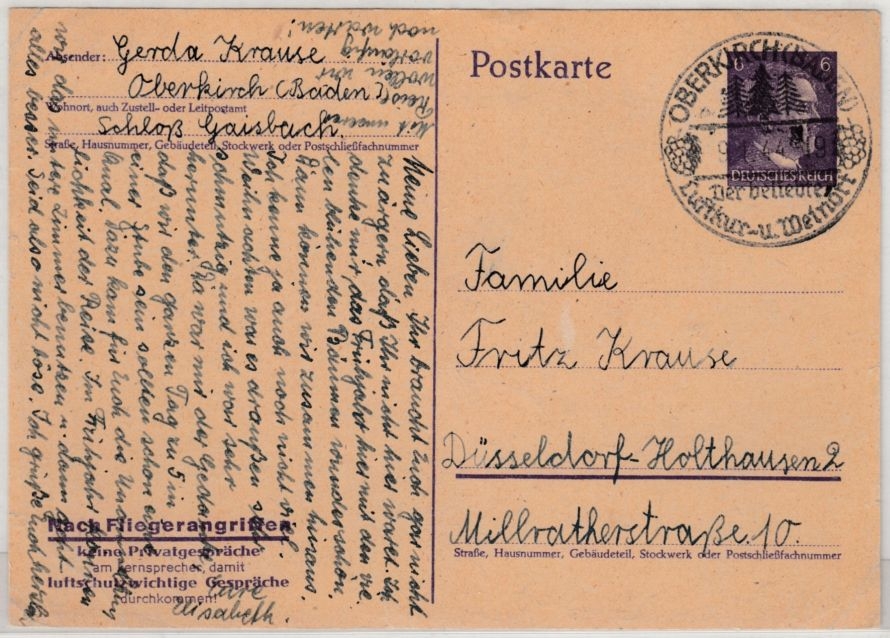 Absender: Gerda Krause
Oberkirch (Baden)
Wohnort, auch Zustell- oder Leitpostamt
Schloß Gaisbach.
Straße, Hausnummer, Gebäudeteil, Stockwerk oder Postschließfachnummer
Meine Lieben. Ihr braucht Euch gar nicht
zu ärgern, daß Ihr nicht hier waret. Ich
denke mir, das Frühjahr hier mit den vie-
len blühenden Bäumen wunderschön.
Dann können wir zusammen hinaus.
Ich kenne ja auch noch nicht viel.
Weihnachten war es draußen sehr
schmutzig und ich war sehr
herunter. Da war mir der Gedanke
daß wir den ganzen Tag zu 5 in
einer Stube sein sollten schon eine
Qual. Dazu kam für Euch die
lichkeit der Reise. Im Frühjahr können
wir das untere Zimmer benutzen u. dann geht
alles besser. Seid also nicht böse. Ich grüße Euch herzl.
Eure
Elisabeth.
Mit unserer
Reise
wollen wir
vorläufig
noch warten!
Nach Fliegerangriffen
keine Privatgespräche
am Fernsprecher, damit
luftschutzwichtige Gespräche
durchkommen!
Postkarte
6 6
DEUTSCHES REICH
OBERKIRCH (BADEN)
44-19
Der beliebte
Luftkur- u. Weinort
Familie
Fritz Krause
Düsseldorf-Holthausen 2
Millratherstraße. 10.
Straße, Hausnummer, Gebäudeteil, Stockwerk oder Postschließfachnummer